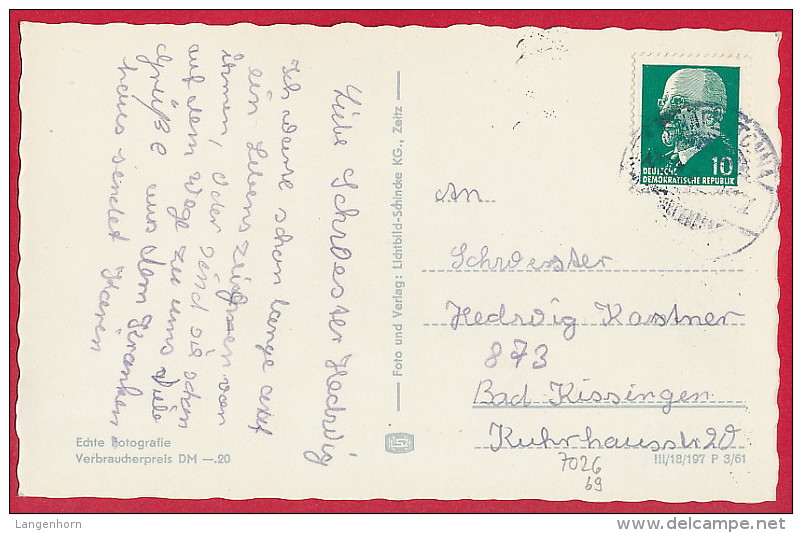 Liebe Schwester Hedwig
Ich warte schon lange auf
ein Lebenszeichen von
ihnen, oder sind sie schon
auf dem Wege zu uns Viele
Grüße aus dem Kranken
haus sendet Karen
Echte Fotografie
Verbraucherpreis DM —.20
Foto und Verlag: Lichtbild-Schincke KG., Zeitz
10
DEUTSCHE
DEMOKRATISCHE REPUBLIK
An
Schwester
Hedwig Kastner
873
Bad Kissingen
Kuhrhausstr 20
III/18/197 P 3/61
7026
69
Langenhorn
www.delcampe.net